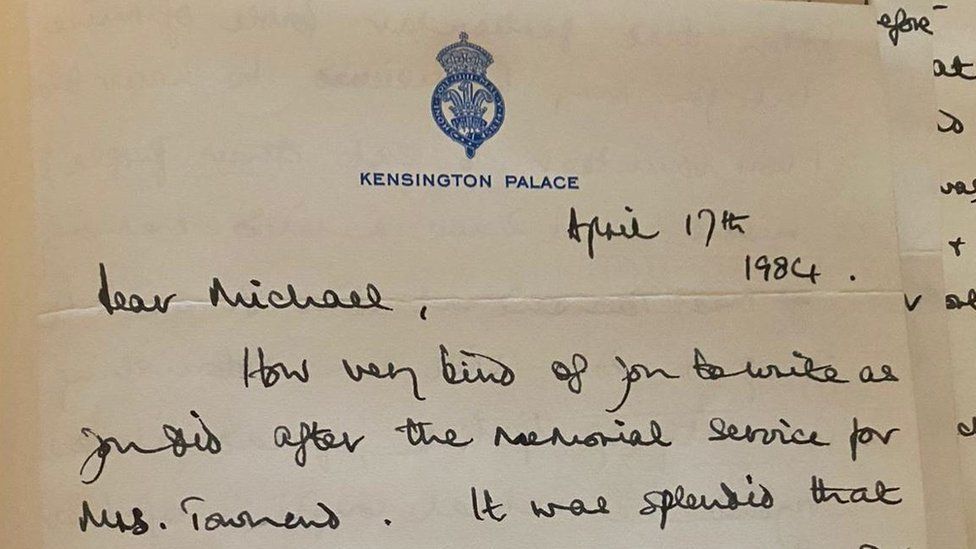 KENSINGTON PALACE
April 17th
1984.
Dear Michael,
How very kind of you to write as
you did after the memorial service for
Mrs. Townend. It was splendid that
efore
at